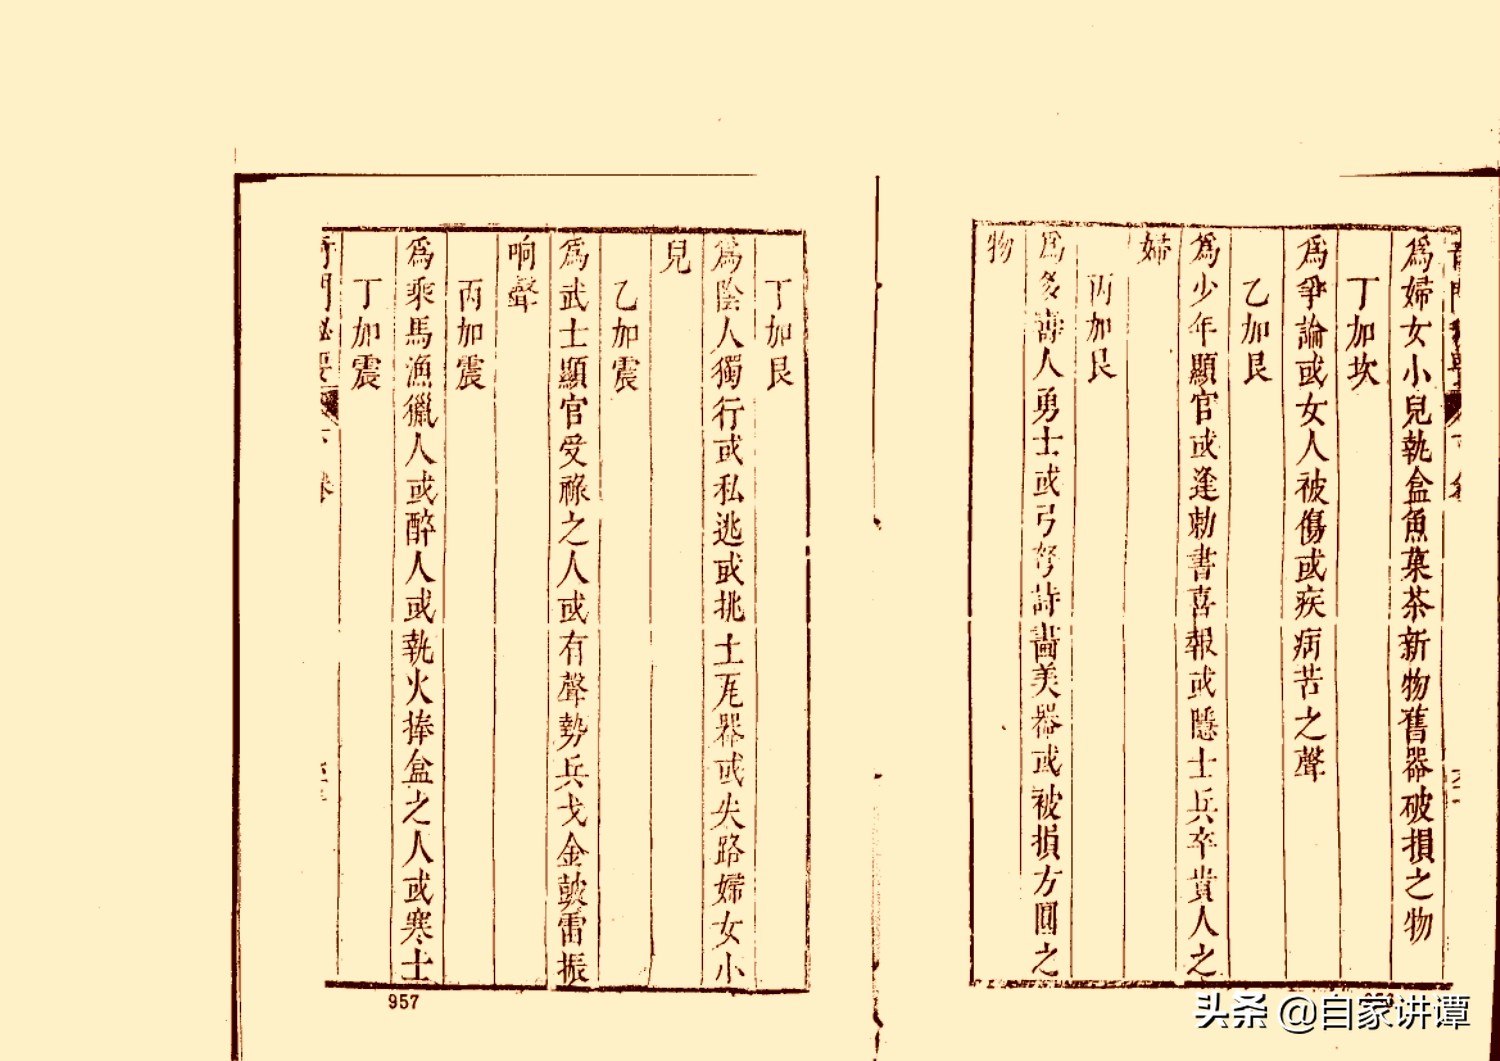 爲婦女小兒執盒魚菓茶新物舊器破損之物
丁加坎
爲爭論或女人被傷或疾病苦之聲
乙加艮
爲少年顯官或逢勅書喜報或隱士兵卒貴人之
婦
丙加艮
爲多壽人勇士或弓弩詩畵美器或被損方圓之
物
丁加艮
爲陰人獨行或私逃或挑土瓦器或失路婦女小
兒
乙加震
爲武士顯官受祿之人或有聲勢兵戈金皷雷振
响聲
丙加震
爲乘馬漁獵人或醉人或執火捧盒之人或寒士
丁加震
957
头条 @自家讲谭